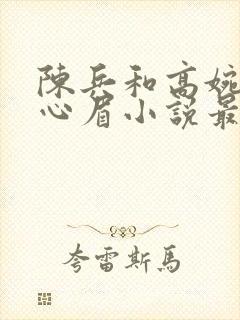 陳兵和高婉
心眉小說最
夸雷斯馬